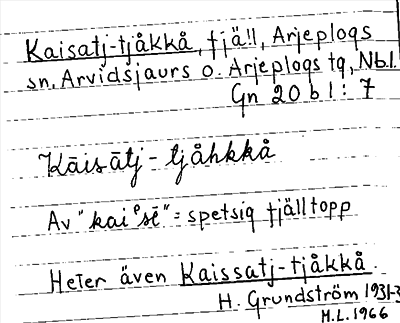 Kaisatj-tjåkkå, fjäll, Arjeplogs
sn, Arvidsjaurs o. Arjeplogs tg, Nbl.
Gn 20 b 1 : 7
Kāisātj - tjåhkkå
Av "kaiᵉsē" = spetsig fjälltopp
Heter även Kaissatj-tjåkkå.
H. Grundström 1931-3
M.L. 1966